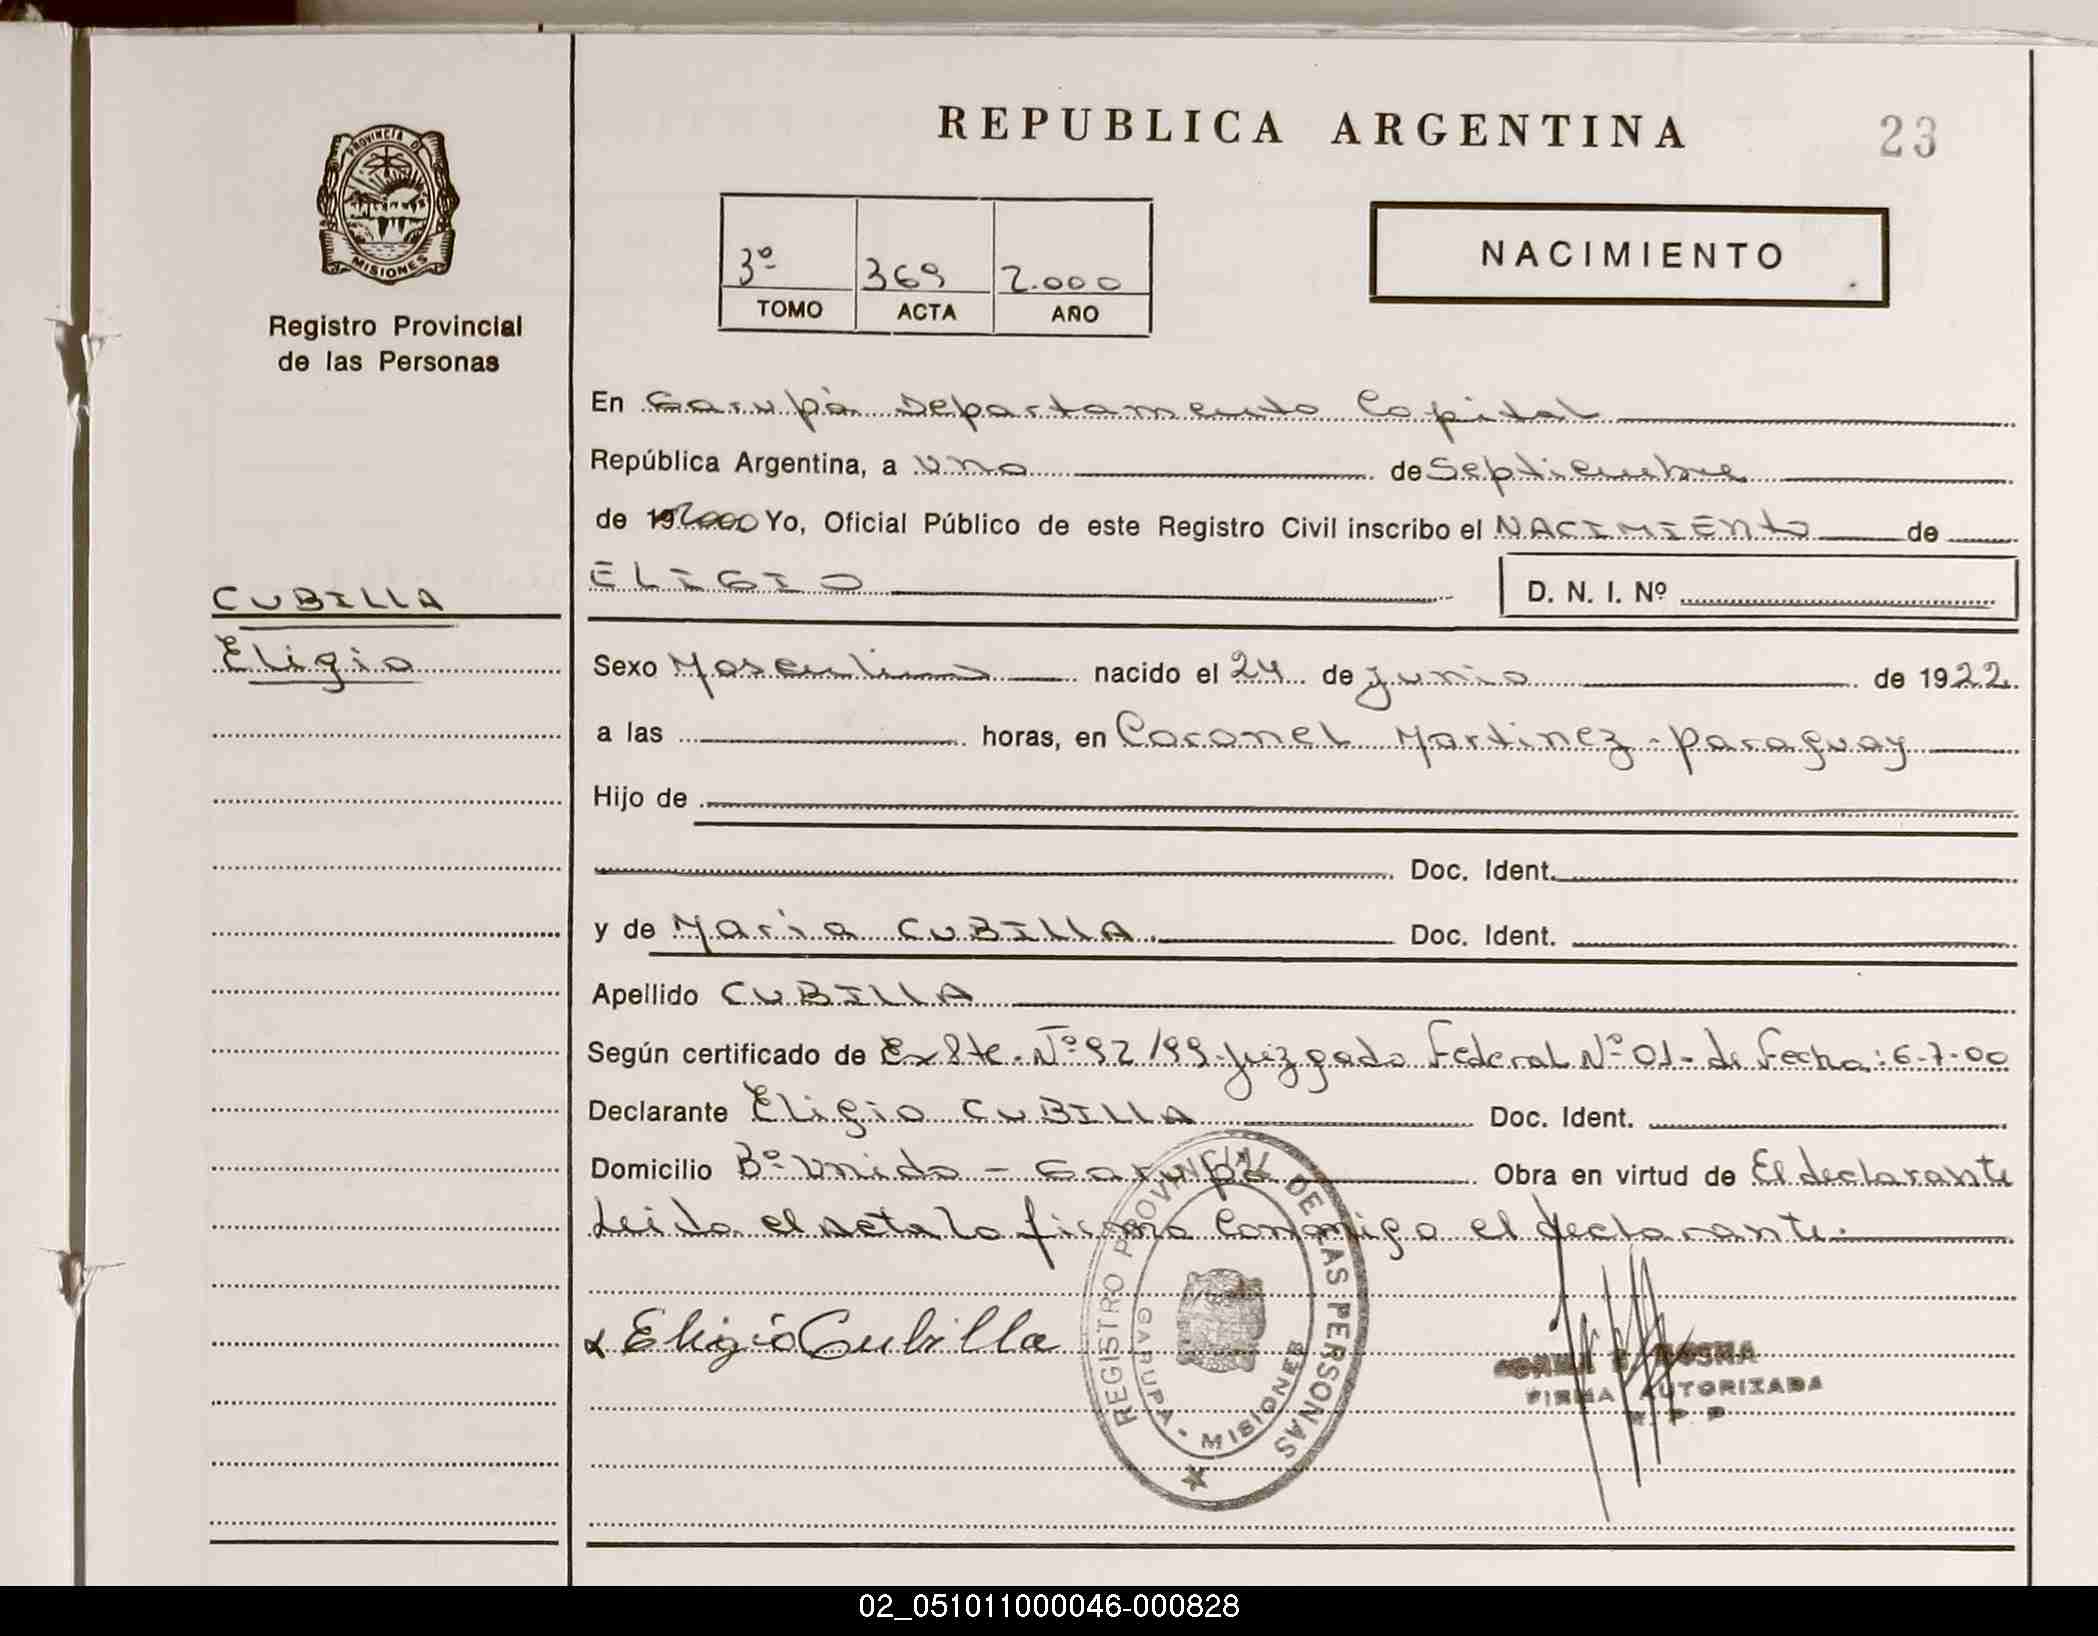 REPUBLICA ARGENTINA
23
PROVINCIA D
MISIONES
Registro Provincial
de las Personas
3º 369 2.000
TOMO ACTA AÑO
NACIMIENTO
En Garupá Departamento Capital
República Argentina, a uno de Septiembre
de 192000 Yo, Oficial Público de este Registro Civil inscribo el NACIMIENTO de
ELIGIO D. N. I. Nº
CUBILLA
Eligio
Sexo Masculino nacido el 24 de junio de 1922
a las horas, en Coronel Martinez - Paraguay
Hijo de
Doc. Ident.
y de Maria CUBILLA. Doc. Ident.
Apellido CUBILLA
Según certificado de Expte. Nº 92/99 Juzgado Federal Nº 01 - de Fecha: 6-7-00
Declarante Eligio CUBILLA Doc. Ident.
Domicilio Bº Unido - Garupá Obra en virtud de El declarante
Leida el acta la firma conmigo el declarante.
x Eligio Cubilla
REGISTRO PROVINCIAL DE LAS PERSONAS
GARUPA - MISIONES
FIRMA AUTORIZADA
R. P. P
02_051011000046-000828